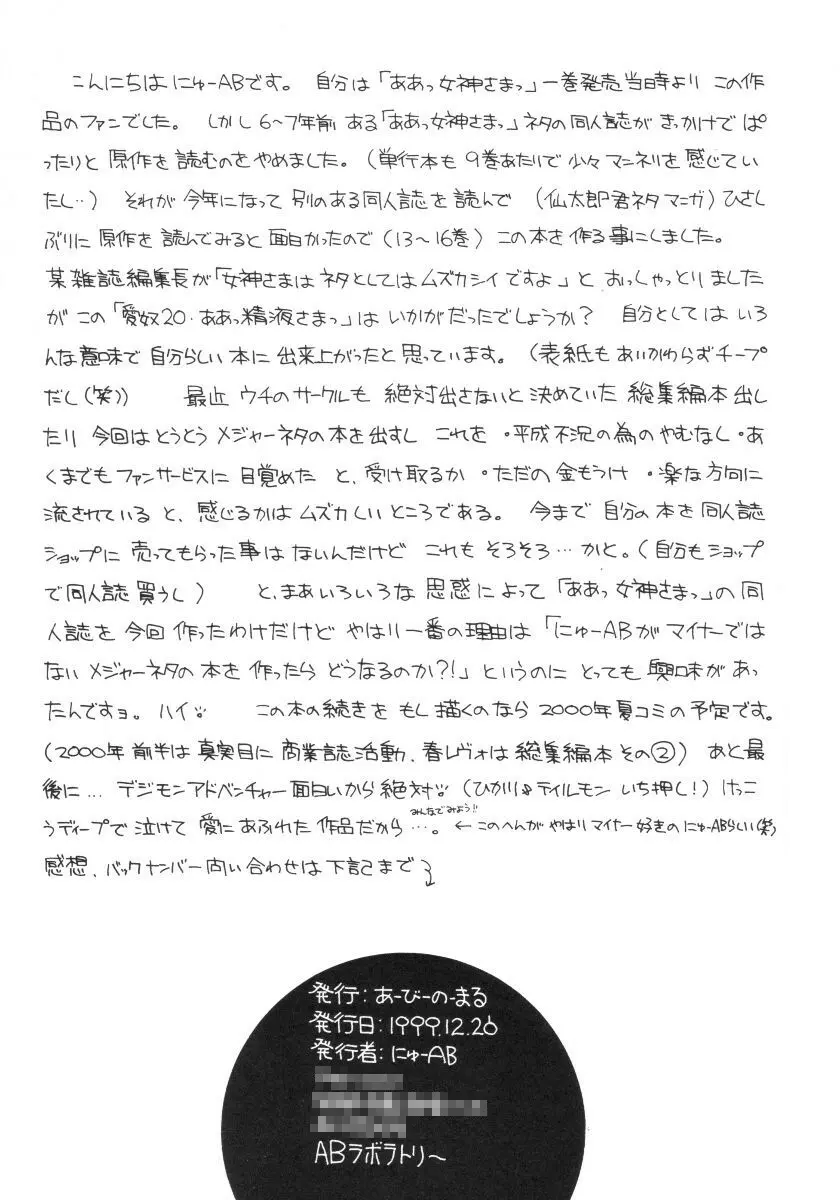 こんにちは にゅーABです。 自分は「ああっ女神さまっ」一巻発売当時より この作
品のファンでした。 しかし 6〜7年前 ある「ああっ女神さまっ」ネタの同人誌が きっかけで ぱ
ったりと 原作を 読むのをやめました。(単行本も 9巻あたりで 少々 マンネリを感じてい
たし‥) それが 今年になって 別のある同人誌を 読んで (仙太郎君ネタ マンガ)ひさし
ぶりに 原作を 読んでみると 面白かったので(13〜16巻) この本を作る事にしました。
某雑誌編集長が「女神さまは ネタとしては ムズカシイですよ」と おっしゃっとりました
が この「愛奴20・ああっ精液さまっ」は いかがだったでしょうか? 自分としては いろ
んな意味で 自分らしい本に 出来上がったと 思っています。(表紙も あいかわらずチープ
だし(笑)) 最近 ウチのサークルも 絶対出さないと 決めていた 総集編本 出し
たり 今回は とうとう メジャーネタの本を 出すし これを ・平成不況の為のやむなし ・あ
くまでも ファンサービスに 目覚めた と、受け取るか ・ただの金もうけ ・楽な方向に
流されている と、感じるかは ムズカしい ところである。 今まで 自分の本を 同人誌
ショップに 売ってもらった事は ないんだけど これも そろそろ…かと。(自分もショップ
で同人誌買うし) と、まあいろいろな 思惑によって「ああっ女神さまっ」の 同
人誌を 今回 作ったわけだけど やはり一番の理由は「にゅーABが マイナーでは
ない メジャーネタの 本を 作ったら どうなるのか?!」というのに とっても 興味があ
ったんですョ。ハイ。 この本の続きを もし描くのなら 2000年夏コミの予定です。
(2000年 前半は 真実目に 商業誌活動、春レヴォは 総集編本 その②) あと最
後に… デジモンアドベンチャー面白いから 絶対!! (ひかり&テイルモン いち押し!) けっこ
うディープで 泣けて 愛にあふれた 作品だから…。 ← このへんが やはり マイナー好きの にゅーABらしい(笑)
みんなでみよう!!
感想、バックナンバー問い合わせは 下記まで
発行:あーびーのーまる
発行日:1999.12.26
発行者:にゅーAB
ABラボラトリ〜